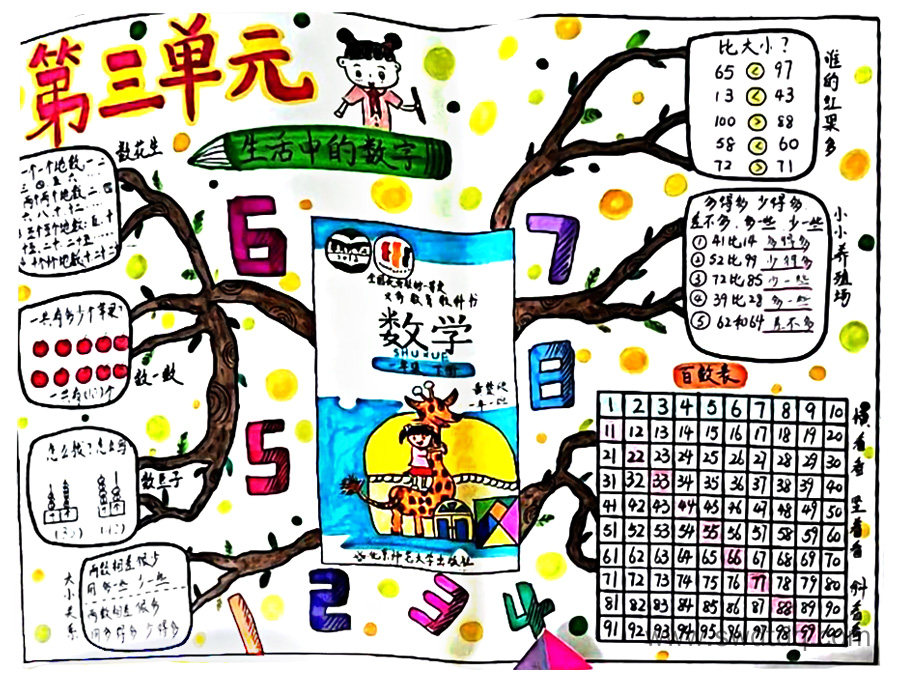 第三单元
生活中的数字
数花生
一个一个地数: 一 二
三 四 五 六
两个两个地数: 二 四
六 八 十 十二
五个五个地数: 五 十
十五 二十 二十五
一共有多少个苹果?
一共有(10)个
数一数
怎么拨? 怎么写
数豆子
大小关系
两数相差很少
用 多一些 少一些
两数相差很多
用 多得多 少得多
义务教育教科书
数学
SHUXUE
一年级 下册
北京师范大学出版社
6
5
2
3
4
7
8
比大小?
65 < 97
13 < 43
100 > 88
58 < 60
72 > 71
谁的红果多
多得多 少得多
差不多 多一些 少一些
① 41比14 多得多
② 52比99 少得多
③ 72比85 少一些
④ 39比28 多一些
⑤ 62和64 差不多
小小养殖场
百数表
1 2 3 4 5 6 7 8 9 10
11 12 13 14 15 16 17 18 19 20
21 22 23 24 25 26 27 28 29 30
31 32 33 34 35 36 37 38 39 40
41 42 43 44 45 46 47 48 49 50
51 52 53 54 55 56 57 58 59 60
61 62 63 64 65 66 67 68 69 70
71 72 73 74 75 76 77 78 79 80
81 82 83 84 85 86 87 88 89 90
91 92 93 94 95 96 97 98 99 100
横看看 竖看看 斜看看